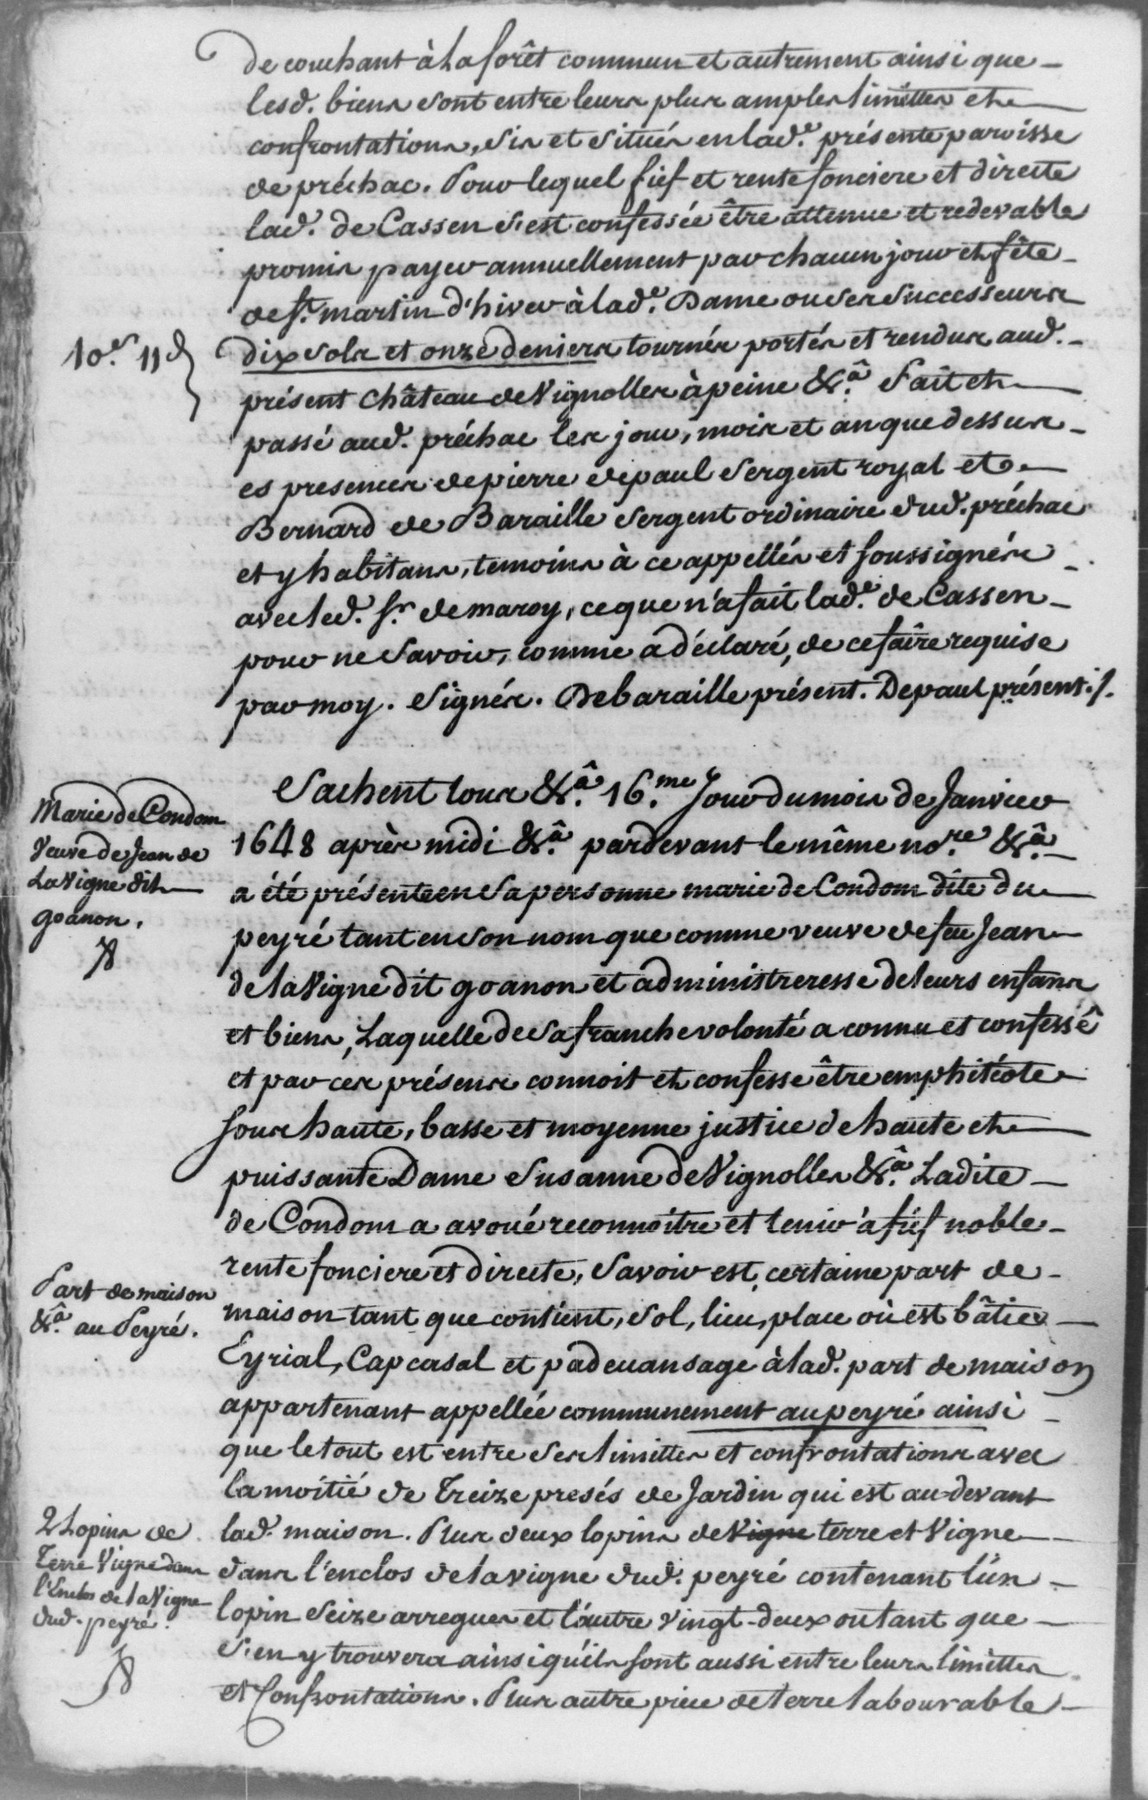 de couchant à la forêt commun et autrement ainsi que
lesd. biens sont entre leurs plus amples limittes et
confrontations, sis et situés en lad.e présente paroisse
de préchac. Pour lequel fief et rente fonciere et directe
lad. de Cassen s'est confessée être attenue et redevable
promis payer annuellement par chacun jour et fête
de St. martin d'hiver à lad.e Dame ou ses successeurs
10.s 11.d
dix sols et onze deniers tournés portés et rendus aud.
présent château de Vignolles à peine &.a Fait et
passé aud. préchac les jour, mois et an que dessus
es presences de pierre depaul sergent royal et
Bernard de Baraille sergent ordinaire dud. préchac
et y habitans, temoins à ce appellés et soussignés
avec led. Sr. de maroy, ce que n'a fait lad.e de Cassen
pour ne savoir, comme a déclaré, de ce faire requise
par moy. Signés. Debaraille présent. Depaul présent.
Marie de Condom
Veuve de Jean de
LaVigne dit
goanon.
Sachent tous &.a 16.me Jour du mois de Janvier
1648 après midi &.a pardevant le même no.re &.a
a été présente en sa personne marie de Condom dite du
peyré tant en son nom que comme veuve de feu Jean
de laVigne dit goanon et administreresse de leurs enfans
et biens, Laquelle de sa franche volonté a connu et confessé
et par ces présens connoit et confesse être emphitéote
sous haute, basse et moyenne justice de haute et
puissante Dame Susanne de Vignolles &.a Ladite
de Condom a avoué reconnoître et tenir à fief noble
rente fonciere et directe, Savoir est, certaine part de
Part de maison
&.a au Peyré.
maison tant que contient, sol, lieu, place où est bâtie
Eyrial, Capcasal et padeuansage à lad. part de maison
appartenant appellée communement au peyré ainsi
que le tout est entre ses limittes et confrontations avec
la moitié de Treize presés de Jardin qui est au devant
2 Lopins de
Terre Vigne dans
l'Enclos de laVigne
dud. peyré.
lad. maison. Plus deux lopins de Vigne terre et Vigne
dans l'enclos de la vigne dud. peyré contenant l'un
lopin Seize arregues et l'autre vingt-deux ou tant que
s'en y trouvera ainsi qu'ils sont aussi entre leurs limittes
et Confrontations. Plus autre piece de terre labourable